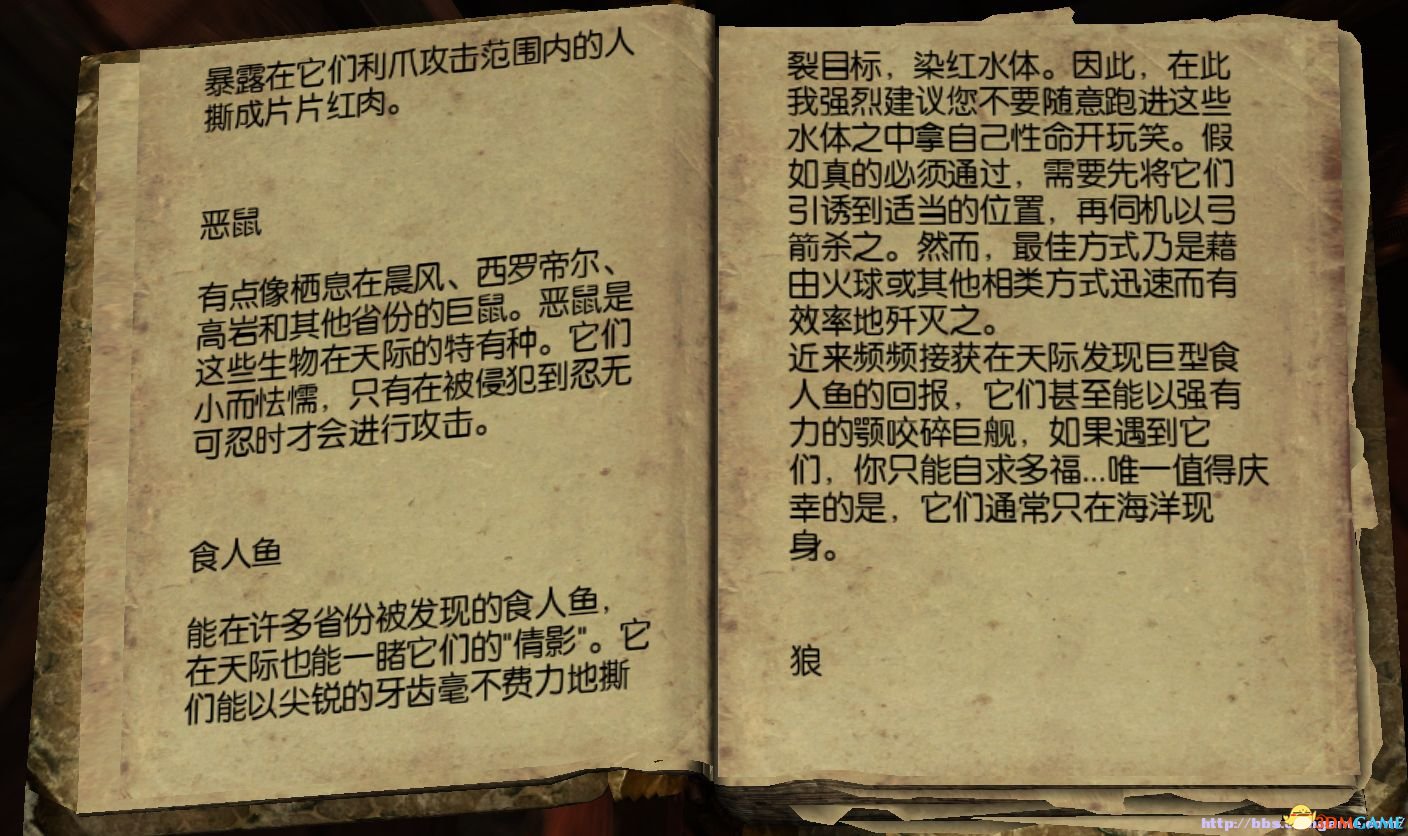 暴露在它们利爪攻击范围内的人
撕成片片红肉。
恶鼠
有点像栖息在晨风、西罗帝尔、
高岩和其他省份的巨鼠。恶鼠是
这些生物在天际的特有种。它们
小而怯懦，只有在被侵犯到忍无
可忍时才会进行攻击。
食人鱼
能在许多省份被发现的食人鱼，
在天际也能一睹它们的"倩影"。它
们能以尖锐的牙齿毫不费力地撕
裂目标，染红水体。因此，在此
我强烈建议您不要随意跑进这些
水体之中拿自己性命开玩笑。假
如真的必须通过，需要先将它们
引诱到适当的位置，再伺机以弓
箭杀之。然而，最佳方式乃是藉
由火球或其他相类方式迅速而有
效率地歼灭之。
近来频频接获在天际发现巨型食
人鱼的回报，它们甚至能以强有
力的颚咬碎巨舰，如果遇到它
们，你只能自求多福...唯一值得庆
幸的是，它们通常只在海洋现
身。
狼